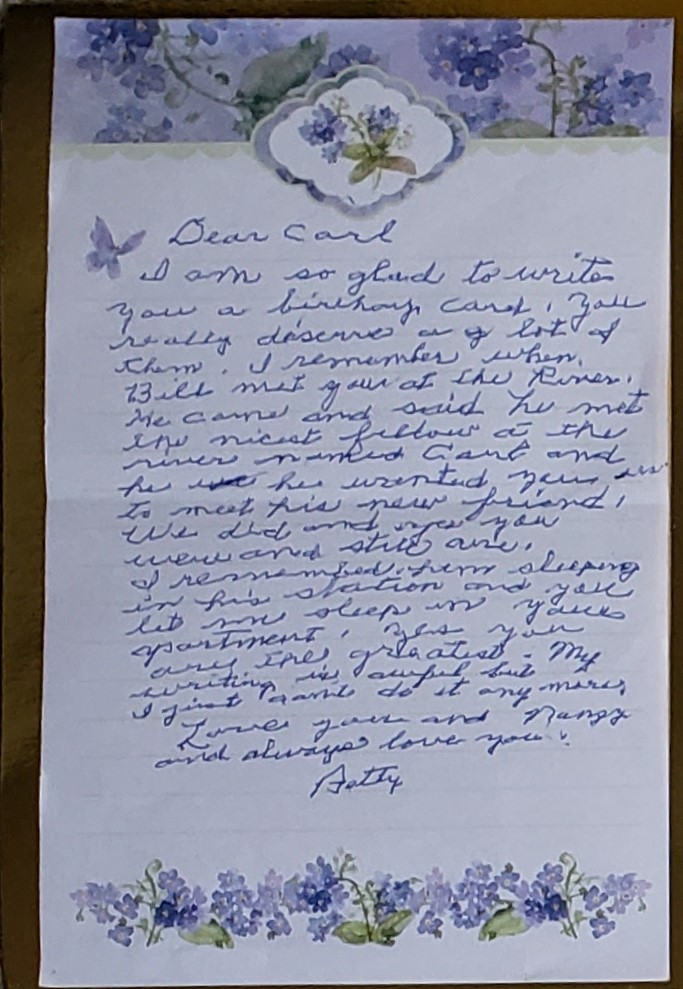 Dear Carl
I am so glad to write
you a birthay card, You
really deserve a lot of
them. I remember when
Bill met you at the River.
He came and said he met
the nicest fellow at the
river named Carl and
he he wanted
to meet his new friend,
We did and yes you
were and still are.
I remember him sleeping
in his station and you
let me sleep in your
apartment, Yes you
are the greatest - My
writing is awful but
I just can't do it any more,
Love you and Nancy
and always love you!
Betty